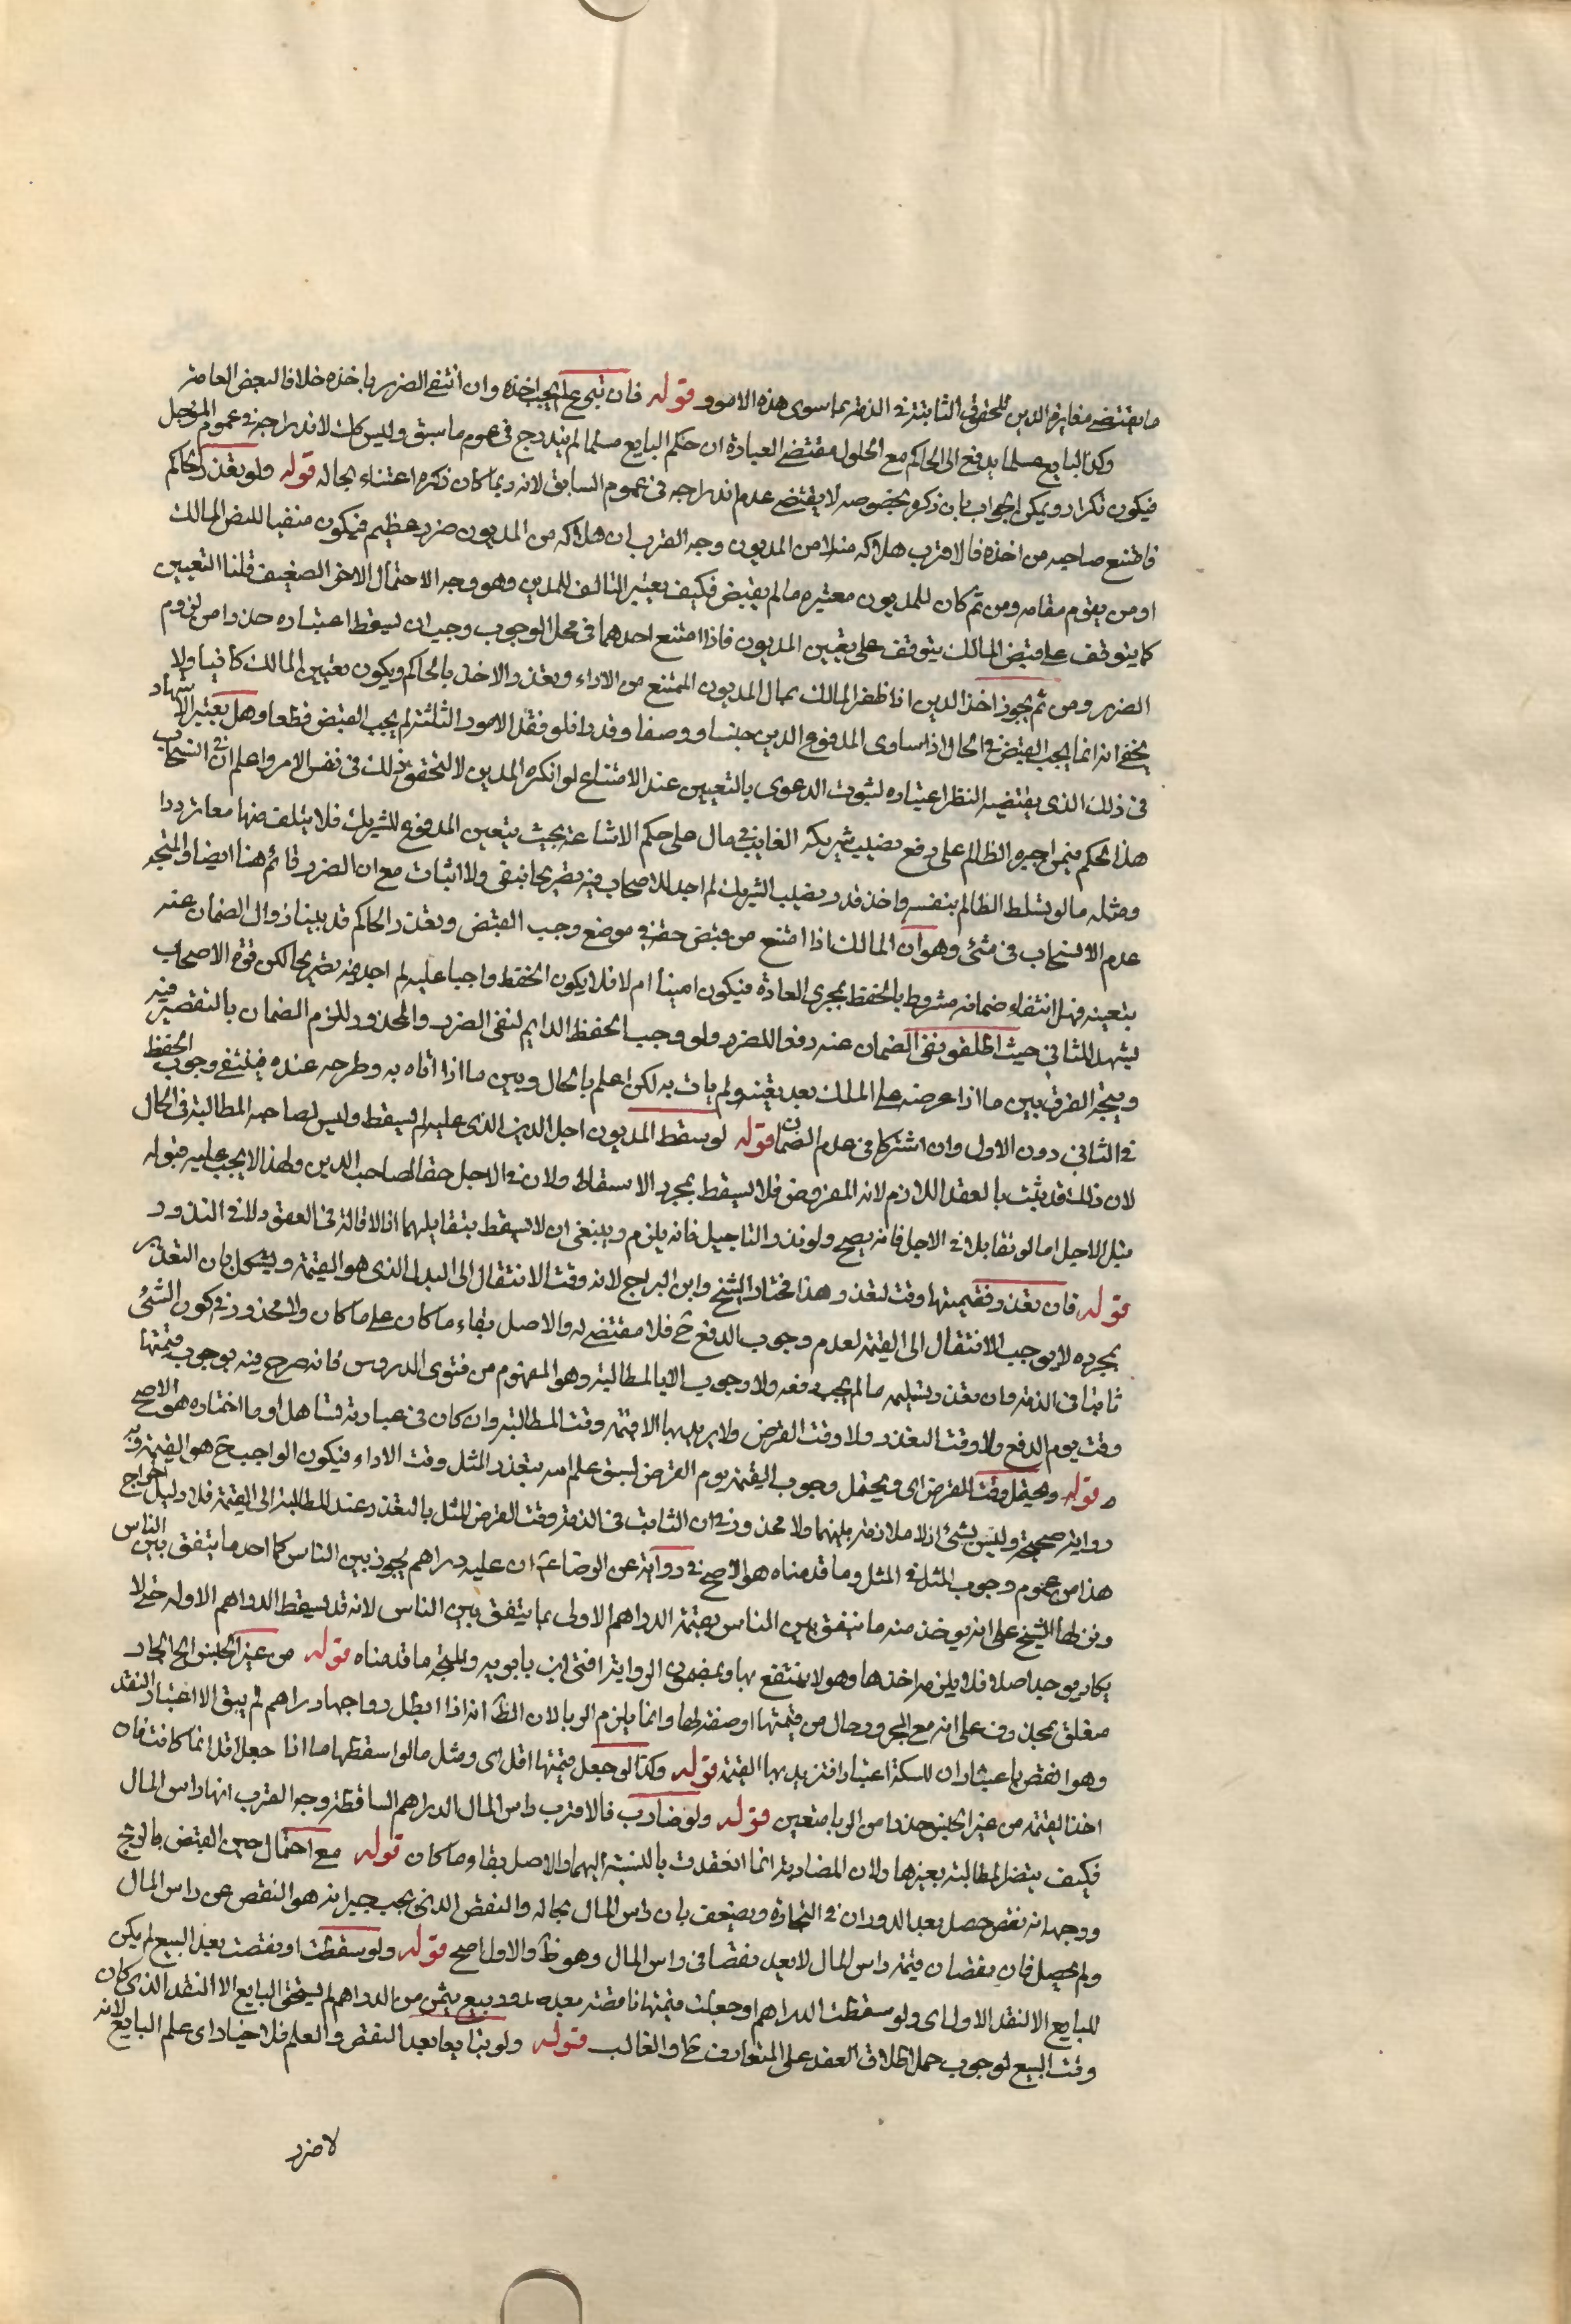 ما يقتضے مغايرة الدين للحقوق الثابتة في الذمة بما سوى هذه الامور قوله فان تبرع لم يجب اخذه وان انتفى الضرر باخذه خلافا لبعض العامة
وكذا البايع سلما يدفع الى الحاكم مع الحلول مقتضے العبارة ان حكم البايع سلما لم يندرج في عموم ما سبق وليس كك لاندراجه في عموم المؤجل
فيكون تكرارا ويمكن الجواب بان ذكره بخصوصه لا يقتضے عدم اندراجه في عموم السابق لانه ربما كان ذكره اعتناء بحاله قوله ولو تعذر الحاكم
فامتنع صاحبه من اخذه فالاقرب هلاكه منه لا من المديون وجه القرب ان هلاكه من المديون ضرر عظيم فيكون منفيا للنص المالك
او من يقوم مقامه ومن ثم كان للمديون معتبره ما لم يقبض فكيف يعتبر التالف للمدين وهو وجه الاحتمال الاخر الضعيف قلنا التعيين
كما يتوقف على قبض المالك يتوقف على تعيين المديون فاذا امتنع احدهما في محل الوجوب وجب ان يسقط اعتباره حذرا من لزوم
الضرر ومن ثم يجوز اخذ الدين اذا ظفر المالك بمال المديون الممتنع من الاداء وتعذر الاخذ بالحاكم ويكون تعيين المالك كافيا ولا
يخفى انه انما يجب القبض في الحال اذا ساوى المدفوع الدين جنسا ووصفا وقدرا فلو فقد الامور الثلثة لم يجب القبض قطعا وهل يعتبر الاشهاد
في ذلك الذي يقتضيه النظر اعتباره لثبوت الدعوى بالتعيين عند الامتناع لو انكره المدين لا لتحقق ذلك في نفس الامر واعلم ان في انسحاب
هذا الحكم فيمن اجبره الظالم على دفع نصيب شريكه الغايب في مال على حكم الاشاعة بحيث يتعين المدفوع للشريك فلا يتلف منهما معا ترددا
ومثله ما لو تسلط الظالم بنفسه واخذ قدر نصيب الشريك لم اجد للاصحاب فيه تصريحا بنفي ولا اثبات مع ان الضرر قائم هنا ايضا والمتجه
عدم الانسحاب في شئ وهو ان المالك اذا امتنع من قبض حقه في موضع وجب القبض وتعذر الحاكم قد بينا زوال الضمان عنه
بتعينه فهل انتفاء ضمانه مشروط بالحفظ بمجرى العادة فيكون امينا ام لا فلا يكون الحفظ واجبا عليه لم اجد فيه تصريحا لكن قوة الاصحاب
يشهد للثاني حيث اطلقوا نفي الضمان عنه دفعا للضرر ولو وجب الحفظ الدايم لنفى الضرر والمحذور للزوم الضمان بالتقصير فيه
ويتجه الفرق بين ما اذا عرضه على الملك بعد تعينه ولم يات به لكن اعلم بالحال وبين ما اذا اتاه به وطرحه عنده فينتفى وجوب الحفظ
في الثاني دون الاول وان اشتركا في عدم الضمان قوله لو سقط المديون اجل الدين الذي عليه لم يسقط وليس لصاحبه المطالبة في الحال
لان ذلك قد يثبت بالعقد اللازم لانه المفروض فلا يسقط بمجرد الاسقاط ولان في الاجل حقا لصاحب الدين ولهذا لا يجب عليه قبوله
قبل الاجل اما لو تقابلا في الاجل فانه يصح ولو نذر التاجيل فانه يلزم وينبغي ان لا يسقط بتقايلهما اذ لا اقالة في العقد ولا في النذور
قوله فان تعذر فقيمتها وقت لتعذر وهذا مختار الشيخ وابن البراج لانه وقت الانتقال الى البدل الذي هو القيمة ويشكل بان التعذر
بمجرده لا يوجب الانتقال الى القيمة لعدم وجوب الدفع ح فلا مقتضے له والاصل بقاء ما كان على ما كان ولا محذور في كون الشئ
ثابتا في الذمة وان تعذر تسليمه ما لم يجب دفعه ولا وجوب الا بالمطالبة وهو المفهوم من فتوى الدروس فانه صرح فيه بوجوب قيمتها
وقت يوم الدفع ولا وقت التعذر ولا وقت القرض ولا يريد بها الا قيمة وقت المطالبة وان كان في عبارته تساهل او ما اختاره هو الاصح
قوله ويحتمل وقت القرض اى ويحتمل وجوب القيمة يوم القرض لسبق علم الله بتعذر المثل وقت الاداء فيكون الواجب ح هو القيمة وبه
رواية صحيحة وليس بشئ اذ لا ملازمة بينهما ولا محذور في ان الثابت في الذمة وقت القرض المثل بالتعذر عند المطالبة الى القيمة فلا دليل اخراج
هذا من عموم وجوب المثل في المثل وما قدمناه هو الاصح في رواية عن الرضا ع ان عليه دراهم يجوز بين الناس كما احد ما يتفق بين الناس
ونزلها الشيخ على انه يوخذ منه ما يتفق بين الناس بقيمة الدراهم الاولى بما يتفق بين الناس لانه قد يسقط الدراهم الاوله حتى لا
يكاد يوجد اصلا فلا يلزمه اخذها وهو لا ينتفع بها وبمضمون الرواية افتى ابن بابويه والمتجه ما قدمناه قوله من غير الجنس الجار
متعلق بمحذوف على انه مع المجرور حال من قيمتها او صفة لها وانما يلزم الربا لان الظ انه اذا ابطل رواجها دراهم لم يبق الا اعتبار النقد
وهو انقص باعتبار ان للسكة اعتبارا فتزيد بها القيمة قوله وكذا لو جعل قيمتها اقل اى ومثل ما لو اسقطها ما اذا جعل اقل انما كانت فان
اخذ القيمة من غير الجنس حذرا من الربا متعين قوله ولو ضارب فالاقرب راس المال الدراهم الساقطة وجه القرب انها راس المال
فكيف يتصل المطالبة بغيرها ولان المضاربة انما انعقدت بالنسبة اليهما والاصل بقاء ما كان قوله مع احتمال حين القبض بالربح
ووجه انه نقص حصل بعد الدوران في التجارة ويضعف بان راس المال بحاله والنقص الذي يجب جبرانه هو النقص عن راس المال
ولم يحصل فان نقصان قيمة راس المال لا يعد نقصا في راس المال وهو ظ والاول اصح قوله ولو سقطت او نقصت بعد البيع لم يكن
للبايع الا النقد الاول اى ولو سقطت الدراهم او جعلت قيمتها ناقصة بعد صدور بيع بثمن من الدراهم لم يستحق البايع الا النقد الذي كان
وقت البيع لوجوب حمل اطلاق العقد على المتعارف ح والغالب قوله ولو تبايعا بعد النقص والعلم فلا خيار اى علم البايع لانه
لا ضرر